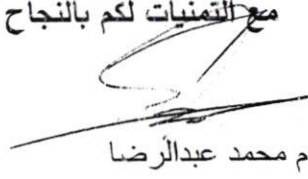 مع التمنيات لكم بالنجاح
م محمد عبدالرضا